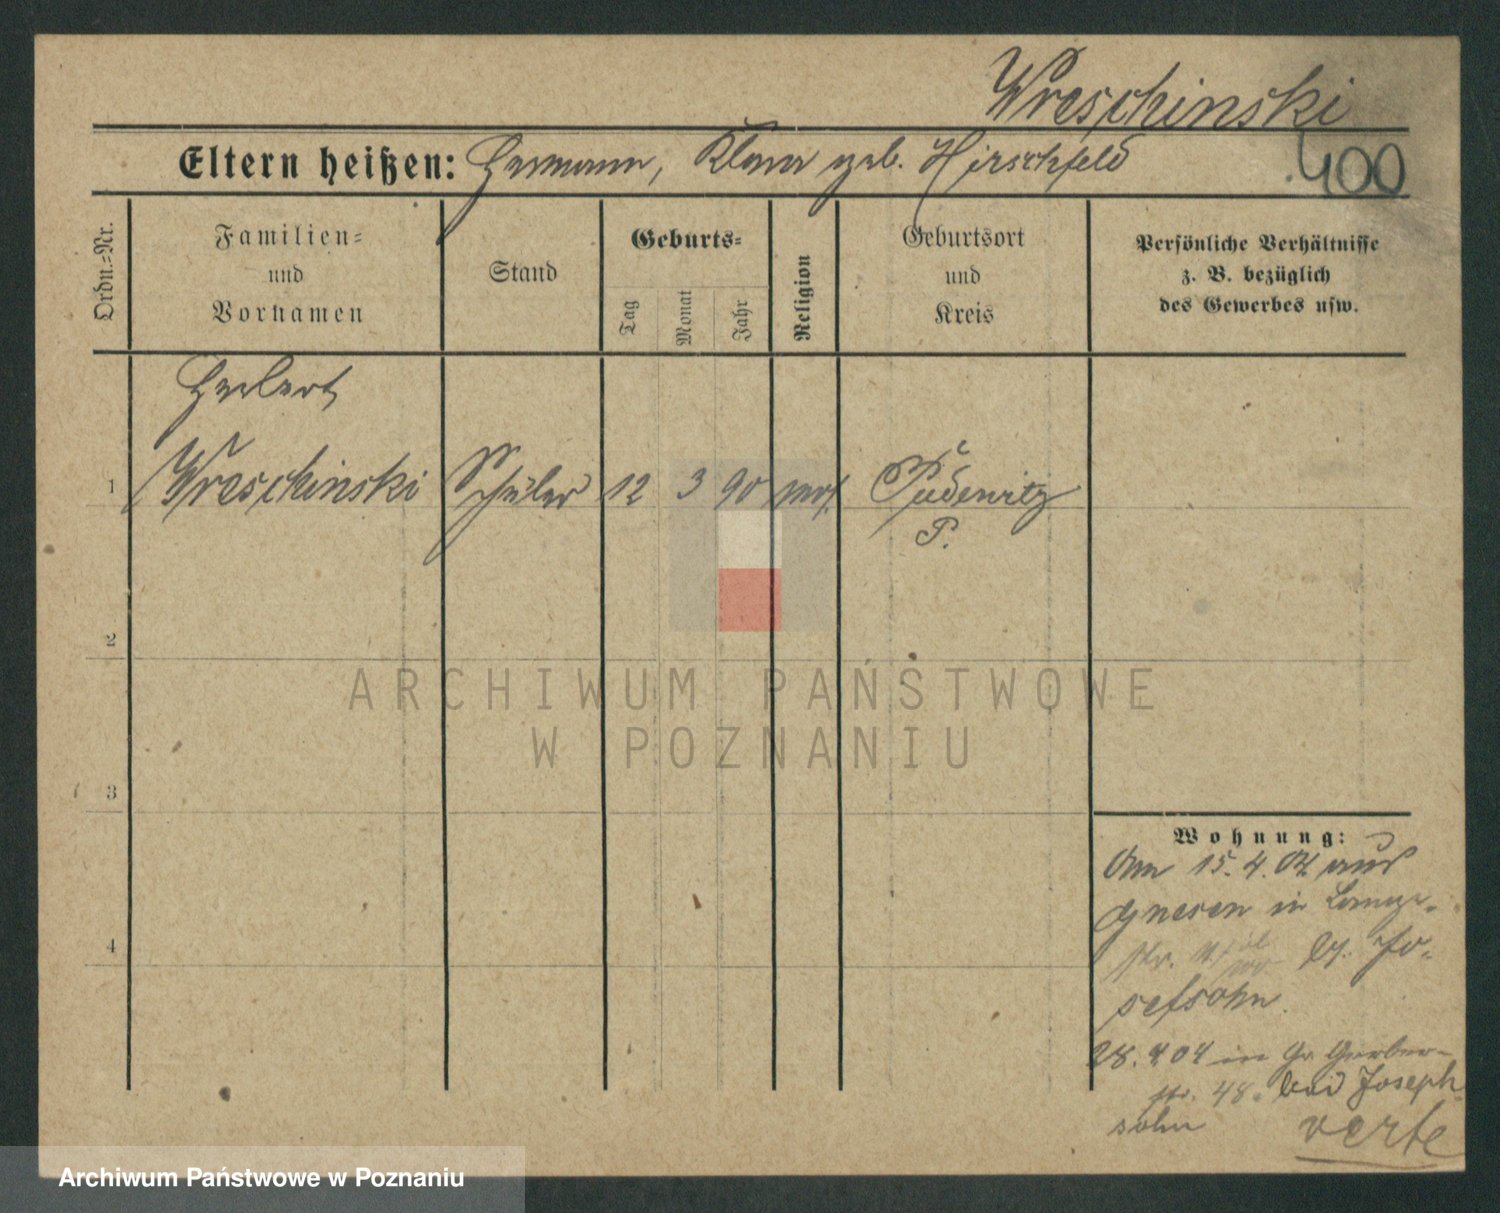 Wreschinski
Eltern heißen: Hermann, Klara geb. Hirschfeld
400
Ordn.=Nr.
Familien=
und
Vornamen
Stand
Geburts=
Tag
Monat
Jahr
Religion
Geburtsort
und
Kreis
Persönliche Verhältnisse
z. B. bezüglich
des Gewerbes usw.
Herbert
1 Wreschinski Schüler 12 3 90 mos. Pudewitz
P.
2
3
4
Wohnung:
Am 15.4.04 aus
Gnesen in Lange-
str. by. Jo-
sefsohn.
28.4.04 in Gr. Gerber-
str. 48. bei Joseph-
sohn
verte
ARCHIWUM PAŃSTWOWE
W POZNANIU
Archiwum Państwowe w Poznaniu